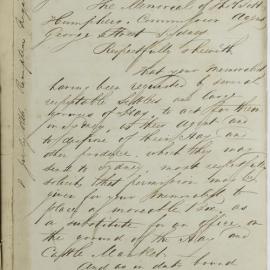 The Memorial of
Humphries, Commission Agent
George Street Sydney
Respectfully sheweth
That your Memorialist
having been requested by several
respectable settlers and large
growers of Hay, to act for them
in Sydney, as their Agent and
to dispose of their Hay and
other produce, which they may
send to Sydney, most respectfully
solicits that permission may be
given for your Memorialist to
place a moveable Box, as
a substitute for an Office, on
the ground of the Hay and
Cattle Market.
And as in duty bound